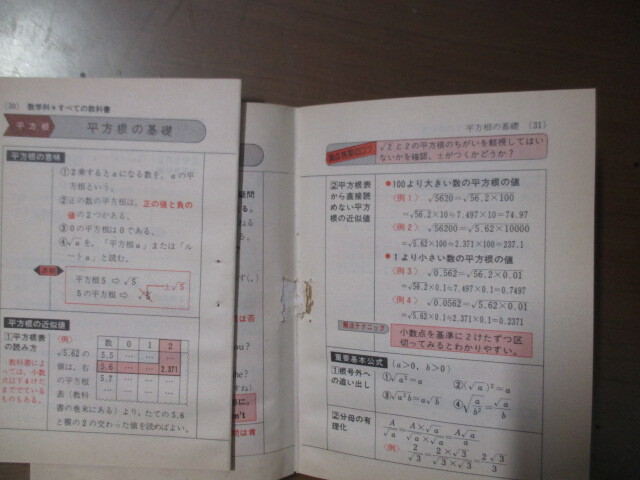 (30) 数学科★すべての教科書
平方根
平方根の基礎
平方根の意味
①2乗するとaになる数を，aの平
方根という。
②正の数の平方根は，正の値と負の
値の2つがある。
③0の平方根は0である。
④√aを，「平方根a」または「ル
ートa」と読む。
平方根5 ⇨ √5
5の平方根 ⇨ √5 ±√5
平方根の近似値
①平方根表
の読み方
教科書によ
っては，小数
点以下4けた
まででている
ものもある。
〈例〉
√5.62の
値は，右
の平方根
表（教科
書の巻末にある）より，たての5.6
と横の2の交わった値を読めばよい。
数 0 1 2
5.5 … … …
5.6 … … 2.371
5.7 … …
平方根の基礎 (31)
√2と2の平方根のちがいを軽視してはい
ないかを確認。±がつくかどうか？
②平方根表
から直接
読めない平方
根の近似値
●100より大きい数の平方根の値
〈例1〉 √5620=√56.2×100
=√56.2×10≒7.497×10=74.97
〈例2〉 √56200=√5.62×10000
=√5.62×100≒2.371×100=237.1
●1より小さい数の平方根の値
〈例3〉 √0.562=√56.2×0.01
=√56.2×0.1≒7.497×0.1=0.7497
〈例4〉 √0.0562=√5.62×0.01
=√5.62×0.1≒2.371×0.1=0.2371
解法テクニック
小数点を基準に2けたずつ区
切ってみるとわかりやすい。
重要基本公式 (a>0, b>0)
①根号外へ
の追い出し
①√a²=a ②(√a)²=a
③√a²b=a√b ④√a/b²=√a/b
②分母の有
理化
A/√a=A×√a/√a×√a=A√a/a
〈例〉 2/√3=2×√3/√3×√3=2√3/3